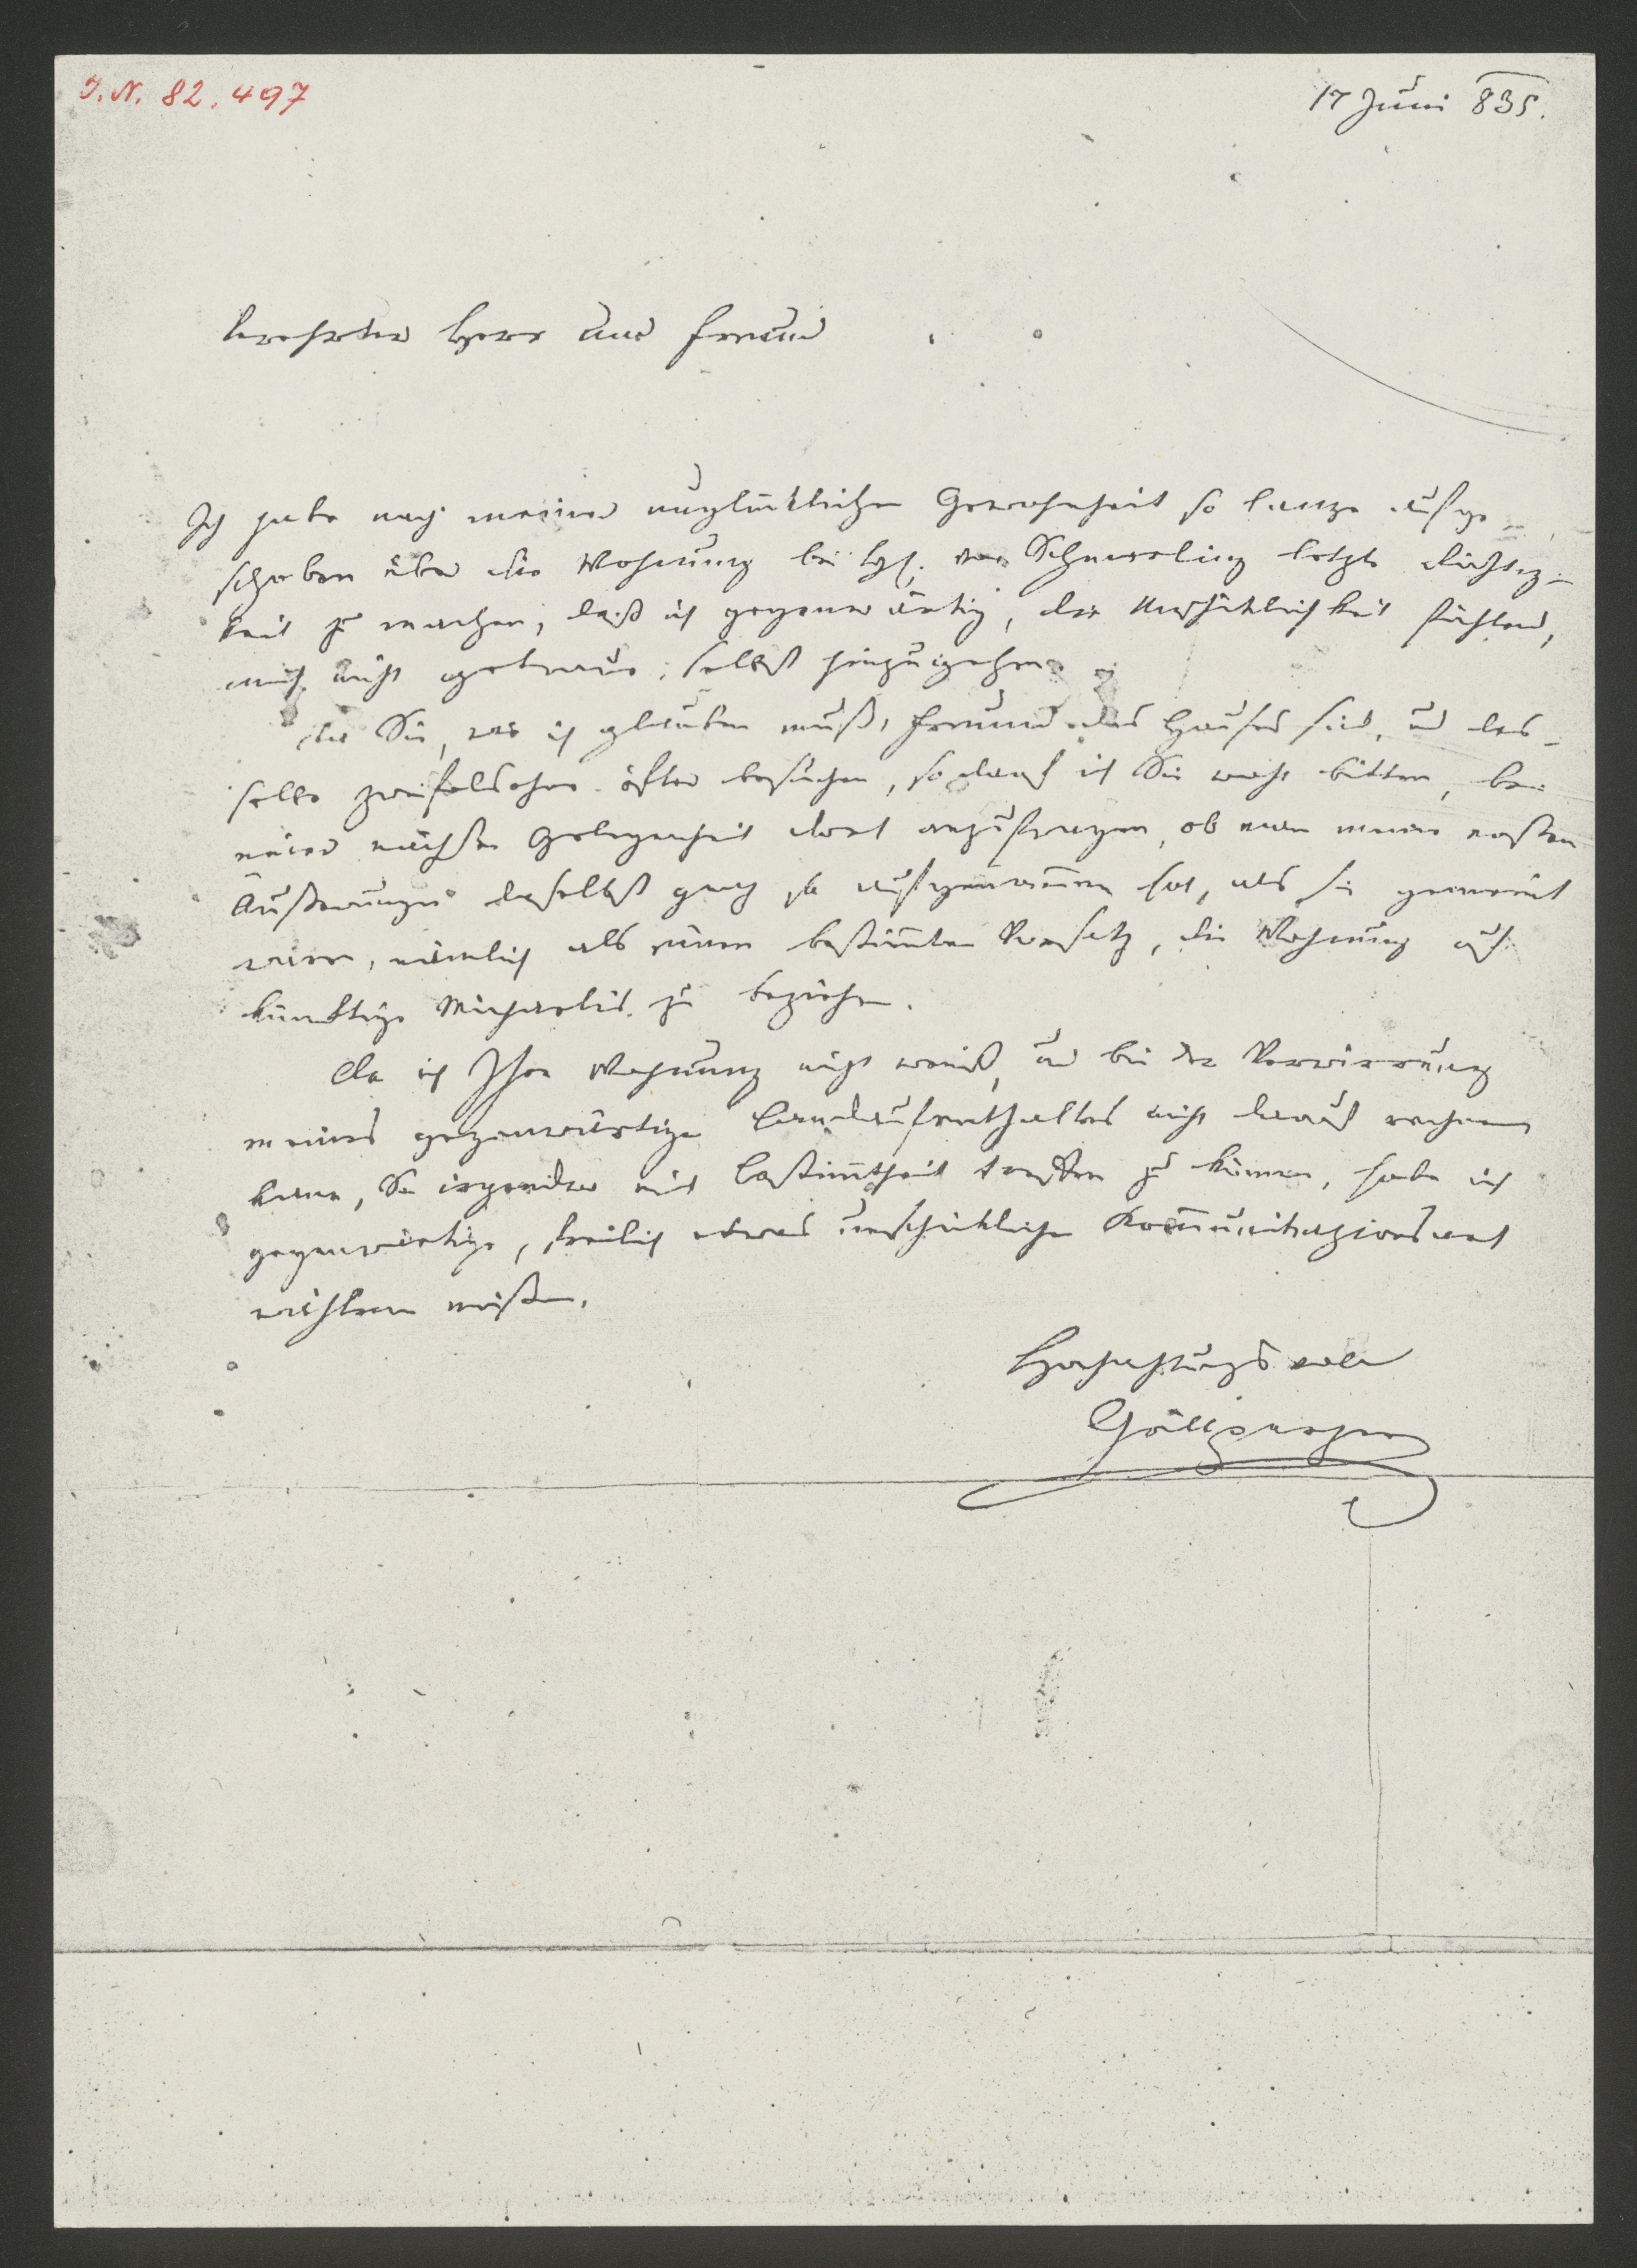 I. N. 82.497
17 Juni 835.
Verehrter Herr und Freund
Ich habe nach meiner unglücklichen Gewohnheit so lange aufge-
schoben über die Wohnung bei H. von Schmerling letzte Richtig-
keit zu machen, daß ich gegenwärtig, die Unschicklichkeit fühlend,
mich nicht getraue, selbst hinzugehen.
Da Sie, wie ich glauben muß, Freund des Hauses sind, und das-
selbe zweifelsohne öfter besuchen, so darf ich Sie wohl bitten, bei
einer nächsten Gelegenheit dort anzufragen, ob man meine ersten
Äußerungen daselbst ganz so aufgenommen hat, als sie gemeint
waren, nämlich als einen bestimmten Vorsatz, die Wohnung auf
künftige Michaelis zu beziehen.
Da ich Ihre Wohnung nicht weiß, und bei der Verwirrung
meines gegenwärtigen Landaufenthaltes nicht darauf rechnen
kann, Sie irgendwo mit Bestimmtheit treffen zu können, habe ich
gegenwärtige, freilich etwas unschickliche Kommunikazionsart
wählen müssen.
Hochachtungsvoll
Grillparzer